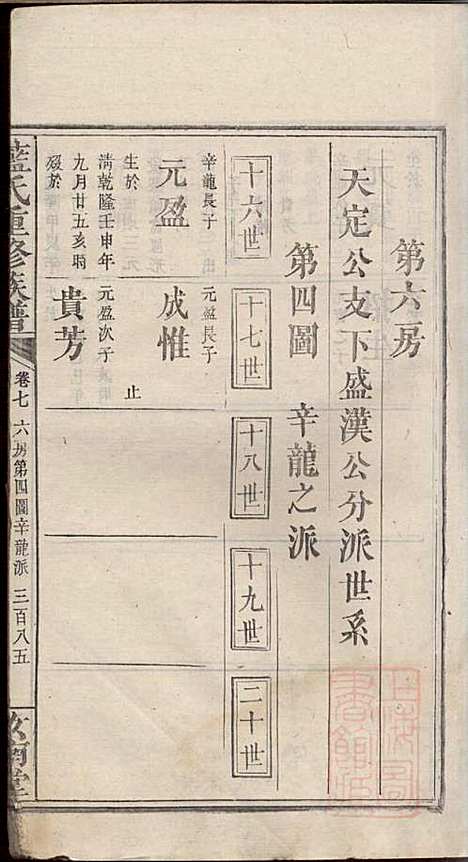 第六房
天定公支下盛漢公分派世系
第四圖　辛龍之派
十六世　十七世　十八世　十九世　二十世
辛龍長子　元盈長子
元盈　成惟
止
生於
清乾隆壬申年
九月廿五亥時
歿於
元盈次子
貴芳
藍氏重修族譜　卷七　六房第四圖辛龍派　三百八五　汝南堂